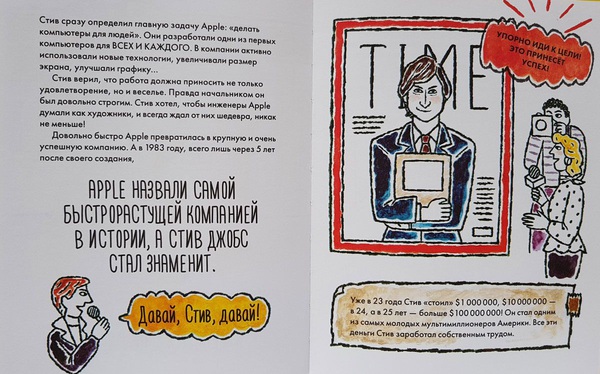 Стив сразу определил главную задачу Apple: «делать
компьютеры для людей». Они разработали одни из первых
компьютеров для ВСЕХ И КАЖДОГО. В компании активно
использовали новые технологии, увеличивали размер
экрана, улучшали графику...
Стив верил, что работа должна приносить не только
удовлетворение, но и веселье. Правда начальником он
был довольно строгим. Стив хотел, чтобы инженеры Apple
думали как художники, и всегда ждал от них шедевра, никак
не меньше!
Довольно быстро Apple превратилась в крупную и очень
успешную компанию. А в 1983 году, всего лишь через 5 лет
после своего создания,
APPLE НАЗВАЛИ САМОЙ
БЫСТРОРАСТУЩЕЙ КОМПАНИЕЙ
В ИСТОРИИ, А СТИВ ДЖОБС
СТАЛ ЗНАМЕНИТ.
Давай, Стив, давай!
TIME
УПОРНО ИДИ К ЦЕЛИ!
ЭТО ПРИНЕСЕТ
УСПЕХ!
Уже в 23 года Стив «стоил» $1 000 000, $10 000 000 —
в 24, а в 25 лет — больше $100 000 000! Он стал одним
из самых молодых мультимиллионеров Америки. Все эти
деньги Стив заработал собственным трудом.